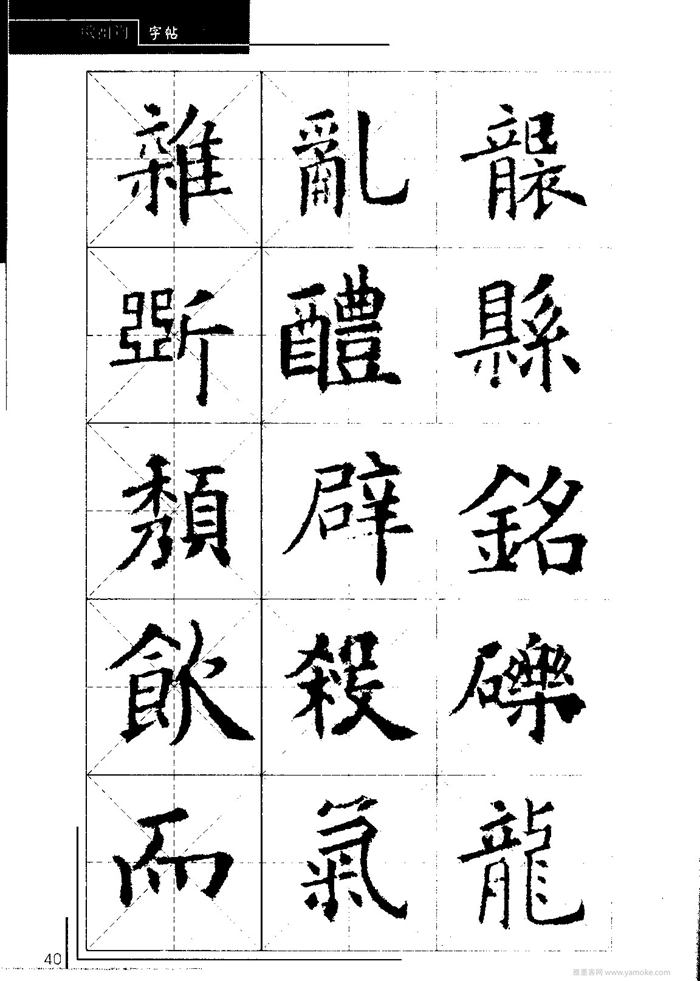 字帖
襲縣銘礫龍
亂醴辟殺氣
雜斵頽飲而
40
雅墨客网 www.yamoke.com